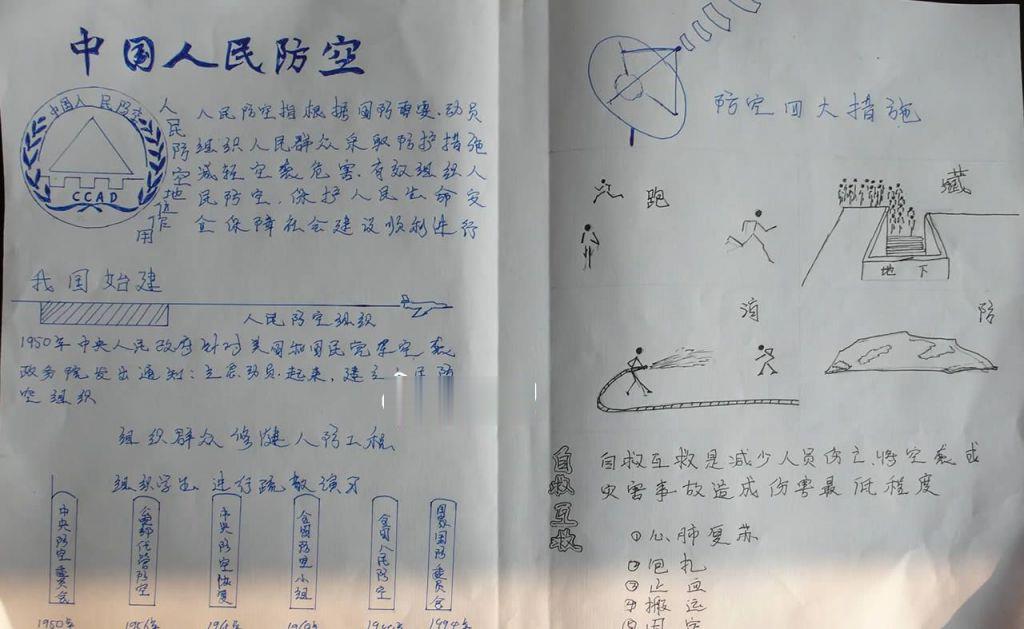 中国人民防空
中国人民防空
CCAD
人民防空地位作用
人民防空指根据国防需要.动员
组织人民群众采取防护措施
减轻空袭危害.有效组织人
民防空.保护人民生命安
全保障社会建设顺利进行
我国始建
人民防空组织
1950年中央人民政府针对美国和国民党军空袭
政务院发出通知:立即动员起来,建立人民防
空组织
组织群众修建人防工程
组织学生进行疏散演习
中央防空委员会
中央防空恢复
全国防空小组
全国人民防空
国家国防委员会
1950年
防空四大措施
跑
藏
地下
消
防
自救互救
自救互救是减少人员伤亡.将空袭或
灾害事故造成伤害最低程度
①心肺复苏
②包扎
③止血
④搬运
⑤固定